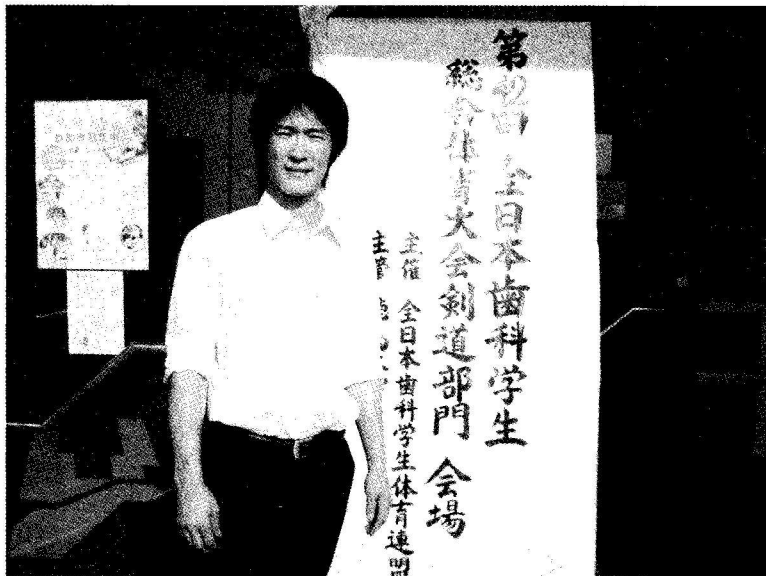 第42回 全日本歯科学生
総合体育大会剣道部門 会場
主催 全日本歯科学生体育連盟
主管